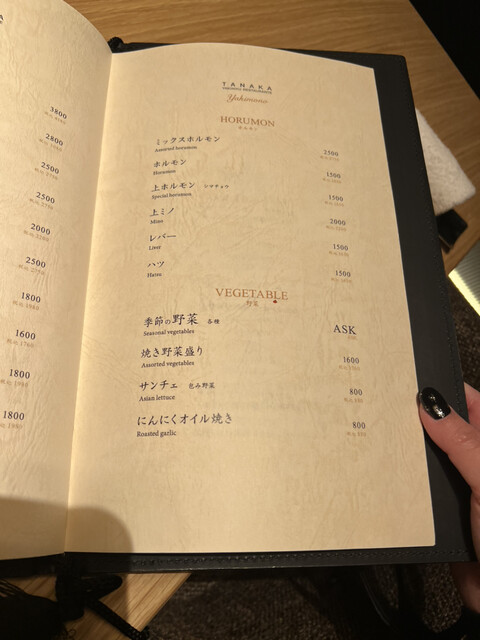 3800
2800
2500
2500
2000
2500
1800
1600
1800
1800
TANAKA
Yakiniku
HORUMON
ホルモン
ミックスホルモン
Assorted horumon
2500
ホルモン
Horumon
1500
上ホルモン シマチョウ
Special horumon
1500
上ミノ
Mino
2000
レバー
Liver
1500
ハツ
Hatsu
1500
VEGETABLE
野菜
季節の野菜 各種
Seasonal vegetables
ASK
焼き野菜盛り
Assorted vegetables
1600
税込 1760
サンチェ 包み野菜
Asian lettuce
800
税込 880
にんにくオイル焼き
Roasted garlic
800
税込 880